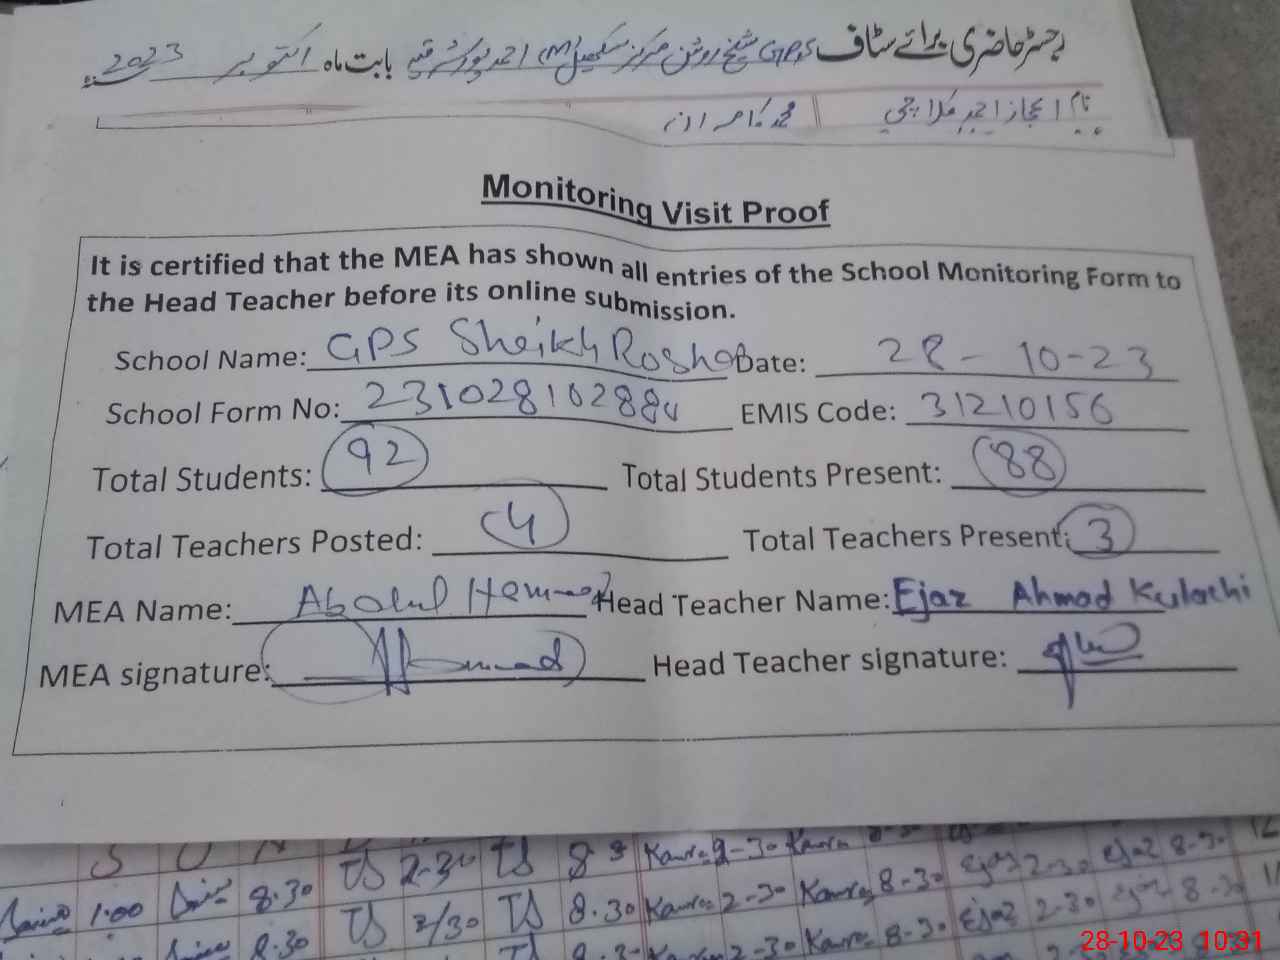 رجسٹر حاضری برائے سٹاف GPS شیخ روشن مرکز سکھیل (M) احمد پور شرقیہ بابت ماہ اکتوبر 2023ء
نام اعجاز احمد کلاچی محمد کامران
Monitoring Visit Proof
It is certified that the MEA has shown all entries of the School Monitoring Form to
the Head Teacher before its online submission.
School Name: GPS Sheikh Roshan Date: 28-10-23
School Form No: EMIS Code: 31210156
Total Students: 92 Total Students Present: 88
Total Teachers Posted: 4 Total Teachers Present: 3
MEA Name: Abdul Hammad Head Teacher Name: Ejaz Ahmad Kulachi
MEA signature: Head Teacher signature:
S U N
TS 2-30 TS 8 Kamran 2-30 Kamran 8-30 Ejaz 2-30 Ejaz 8-30
1:00 8.30 TS 2/30 TS 8.30 Kamran 2-30 Kamran 8-30 Ejaz 2-30 Ejaz 8-30
8.30
28-10-23 10:31